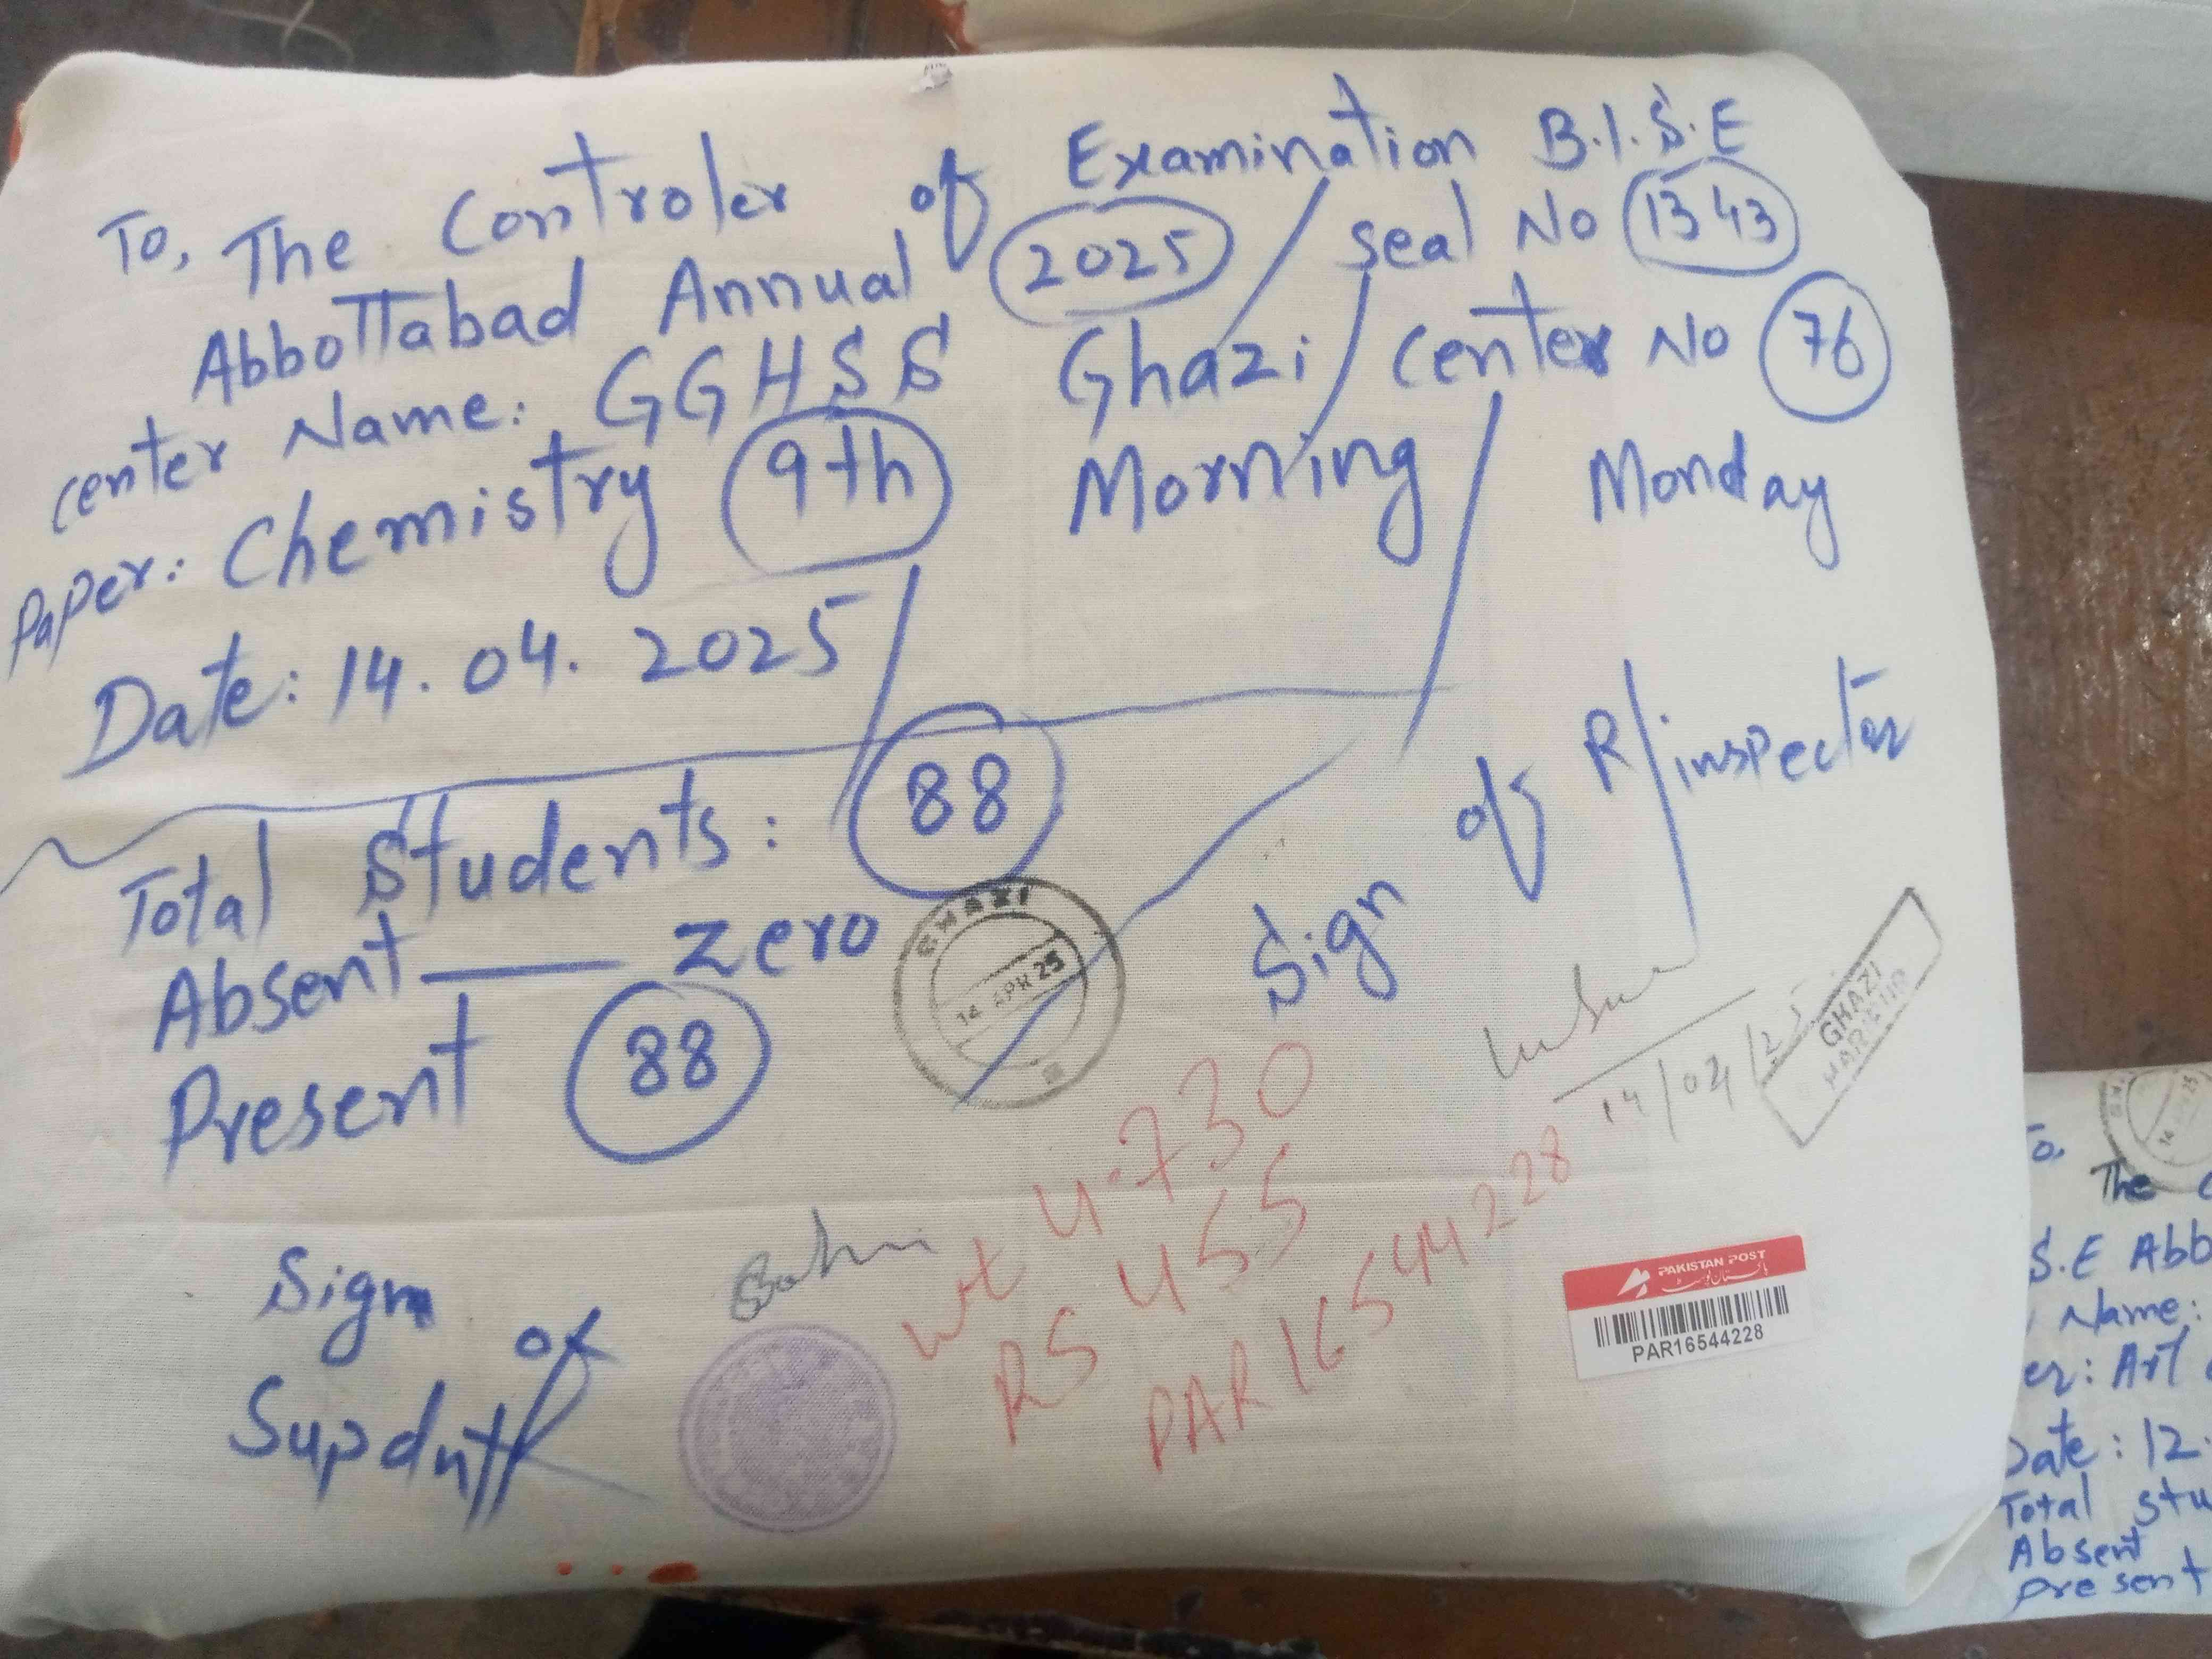 To, The Controler of Examination B.I.S.E
Abbottabad Annual 2025 / seal No 1343
center Name: GGHSS Ghazi / center No 76
Paper: Chemistry 9th Morning / Monday
Date: 14.04.2025
Total Students: 88
Absent — Zero
Present 88
Sign of R/inspector
14/04/25
GHAZI
14 APR 25
GHAZI
HARIPUR
Sign of
Supdntt
wt 4.730
RS 455
PAR16544228
PAKISTAN POST
پاکستان پوسٹ
PAR16544228
14
To,
The
S.E Abb
Name:
er: Art
Date: 12.
Total stu
Absent
present